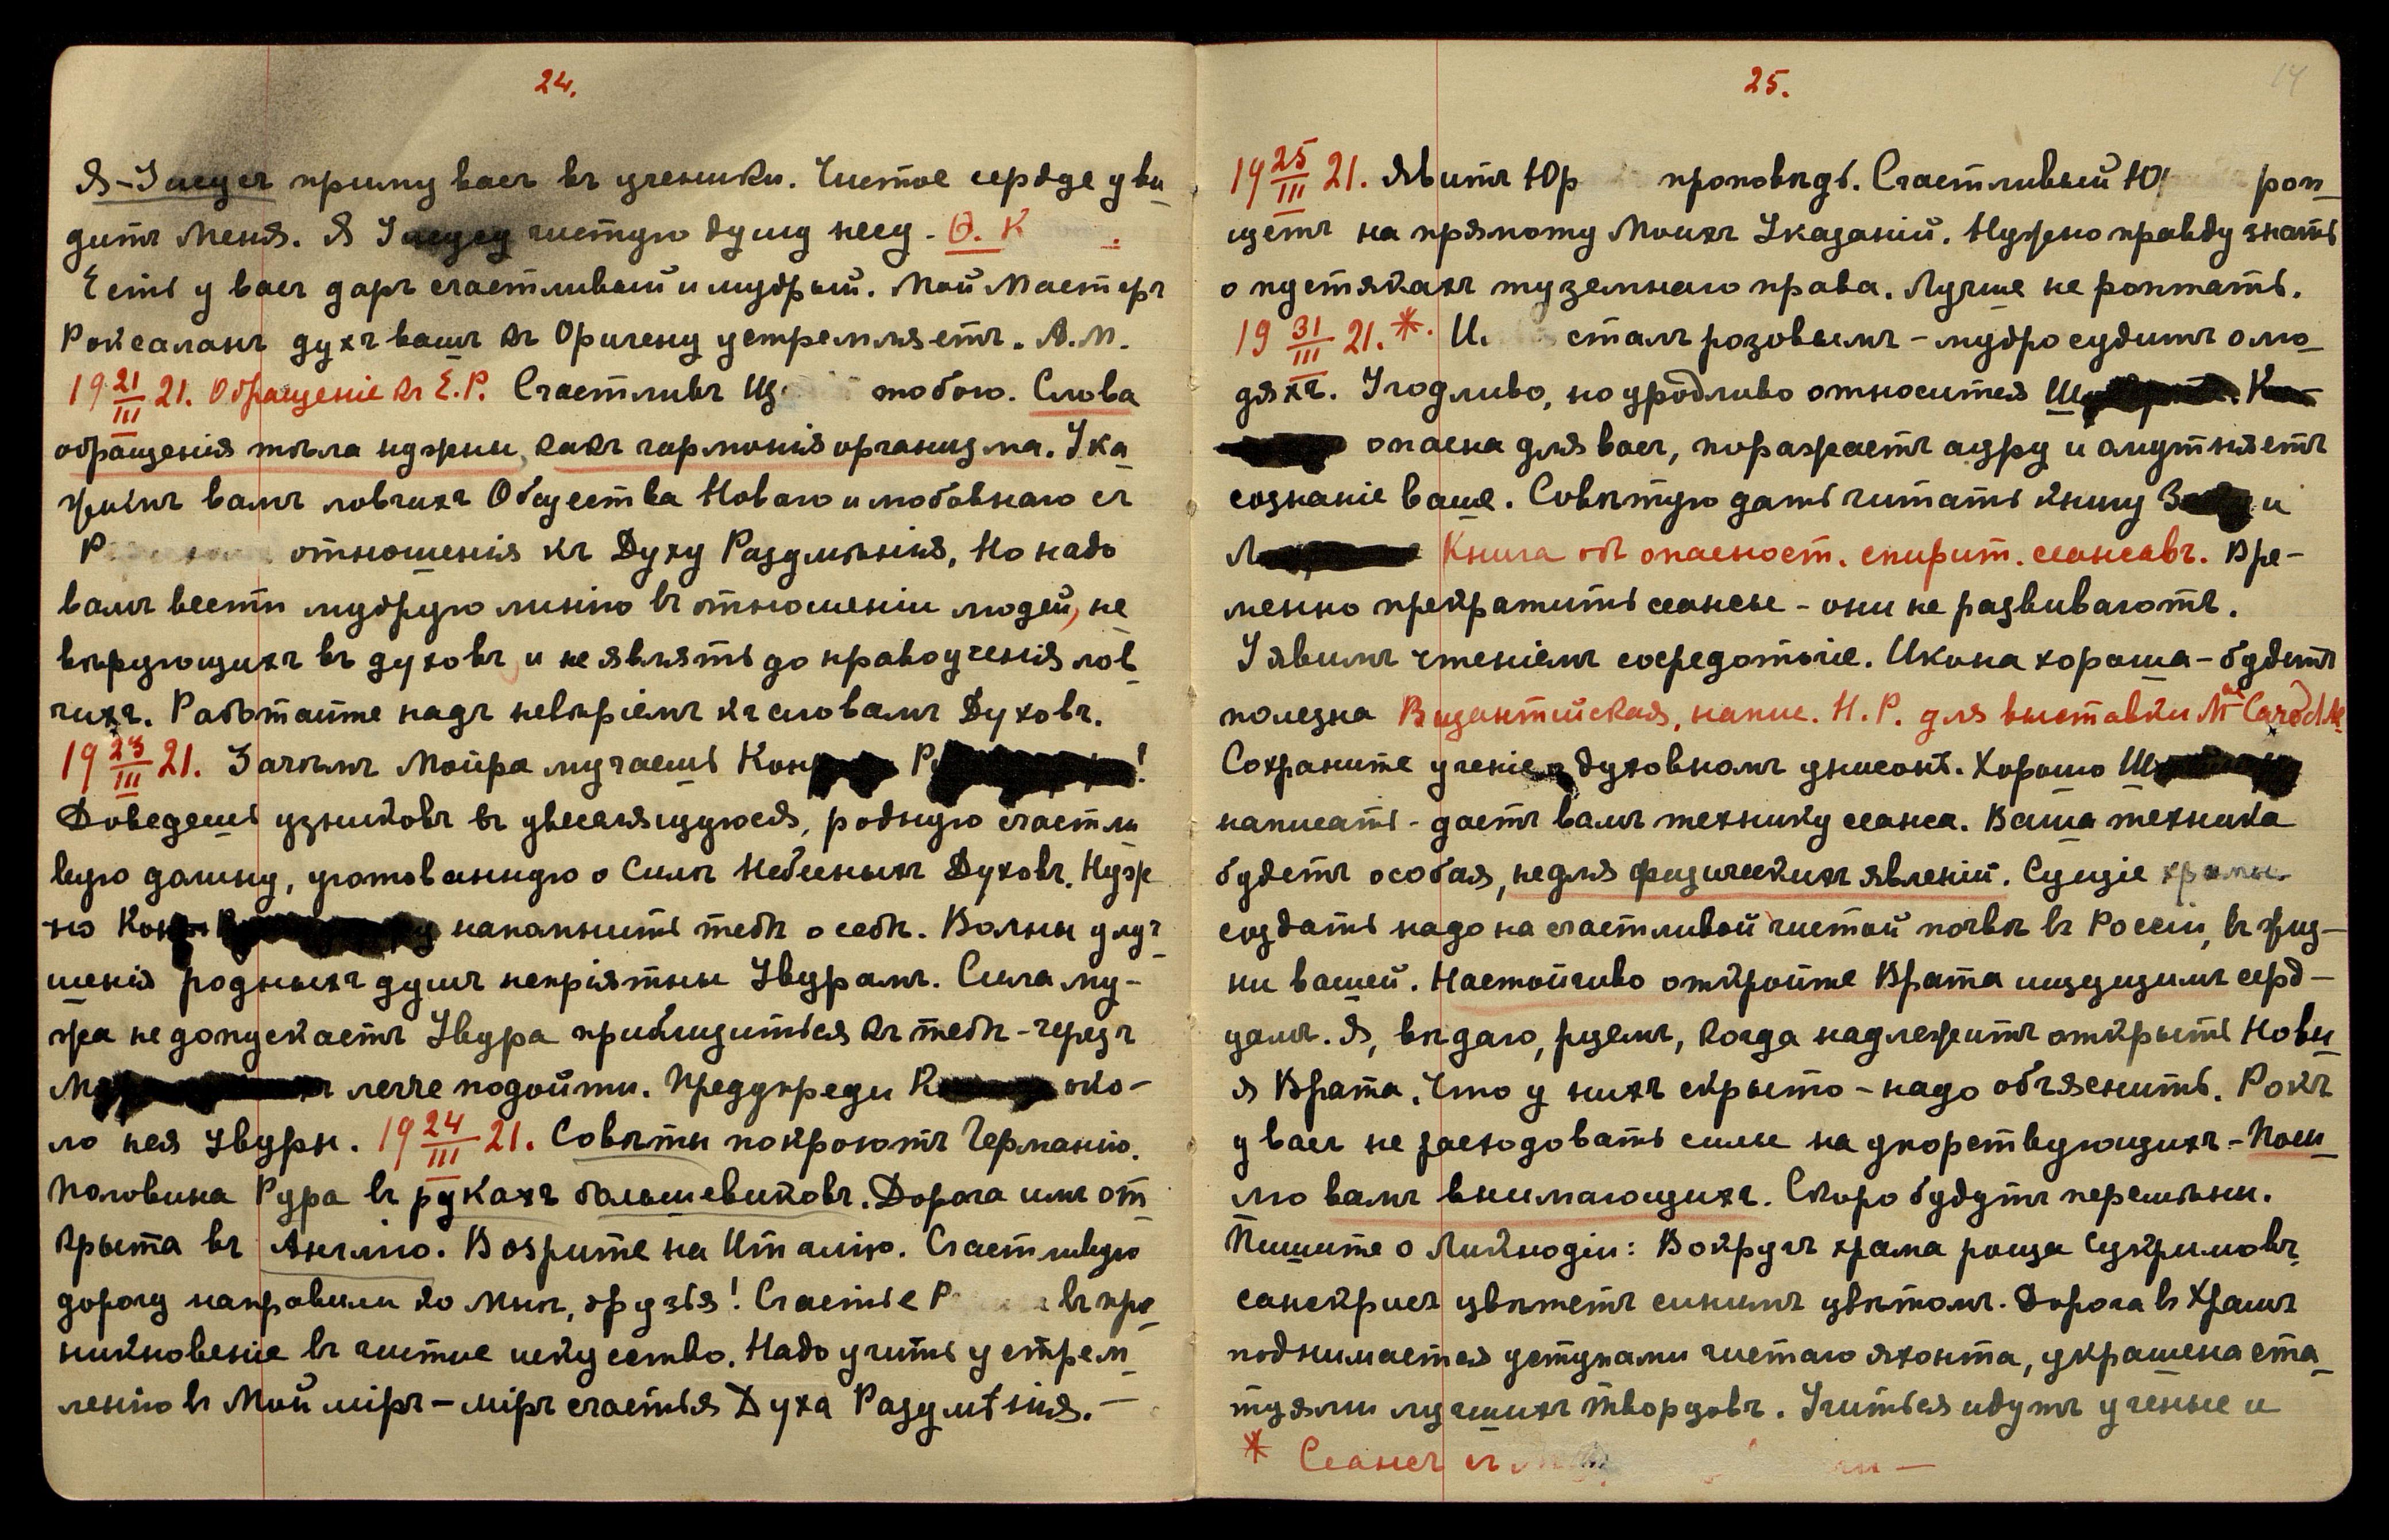 24.
Я-Іисусъ приму васъ въ ученики. Чистое сердце уви
дитъ Меня. Я Іисусу чистую душу несу. Ѳ. К
Есть у васъ даръ счастливый и мудрый. Мой Мастеръ
Роксаланъ духъ вашъ къ Оригену устремляетъ. А.М.
19 21/III 21. Обращеніе къ Е.Р. Счастливъ тобою. Слова
обращенія тѣла нужны, какъ гармонія организма. Ука
жемъ вамъ ловчихъ Общества Новаго и любовнаго съ
Р отношенія къ Духу Разумѣнія, Но надо
вамъ вести мудрую линію въ отношеніи людей, не
вѣрующихъ въ духовъ, и не являть до нравоученія лов
чихъ. Работайте надъ невѣріемъ къ словамъ Духовъ.
19 23/III 21. Зачѣмъ Мойра мучаешь Кон Р !
Доведешь узниковъ въ увеселяющуюся, родную счастли
вую долину, уготованную о Силѣ Небесныхъ Духовъ. Нуж
но напомнить тебѣ о себѣ. Волны улуч
шенія родныхъ душъ непріятны Увурамъ. Сила му-
жа не допускаетъ Увура приблизиться къ тебѣ - черезъ
М легче подойти. Предупреди К око-
ло нея Увуры. 19 24/III 21. Совѣты покроютъ Германію.
Половина Рура въ рукахъ большевиковъ. Дорога имъ от
крыта въ Англію. Возрите на Италію. Счастливую
дорогу направили ко Мнѣ, друзья! Счастье Р въ про
никновеніе въ чистое искусство. Надо учить устрем
ленію въ Мой міръ - міръ счастья Духа Разумѣнія. -
25.
14
19 25/III 21. Явитъ Юр проповѣдь. Счастливый Ю роп
щетъ на прямоту Моихъ Указаній. Нужно правду знать
о пустякахъ туземнаго права. Лучше не роптать.
19 31/III 21.* И. сталъ розовымъ - мудро судитъ о лю
дяхъ. Угодливо, но уродливо относится Ш
опасна для васъ, поражаетъ ауру и омутняетъ
сознаніе ваше. Совѣтую дать читать книгу З и
Л Книга объ опасност. спирит. сеансовъ. Вре-
менно прекратить сеансы - они не развиваютъ.
Уявимъ чтеніемъ сосредоточіе. Икона хороша - будетъ
полезна Византійская, напис. Н.Р. для выставки
Сохраните ученіе о духовномъ унисонѣ. Хорошо Ш
написать - дастъ вамъ технику сеанса. Ваша техника
будетъ особая, не для физическихъ явленій. Сущіе храмы
создать надо на счастливой чистой почвѣ въ Россіи, въ жиз-
ни вашей. Настойчиво откройте Врата ищущимъ серд-
цамъ. Я, вѣдаю, рцемъ, когда надлежитъ открыть Новы
я Врата. Что у нихъ скрыто - надо объяснить. Рокъ
у васъ не расходовать силы на упорствующихъ - Пош
лю вамъ внимающихъ. Скоро будутъ перемѣны.
Пишите о Ликнодіи: Вокругъ храма роща Сукримовъ
сенскрисъ цвѣтетъ синимъ цвѣтомъ. Дорога въ Храмъ
поднимается уступами чистаго яхонта, украшена ста
туями лучшихъ творцовъ. Учиться идутъ ученые и
* Сеансъ съ